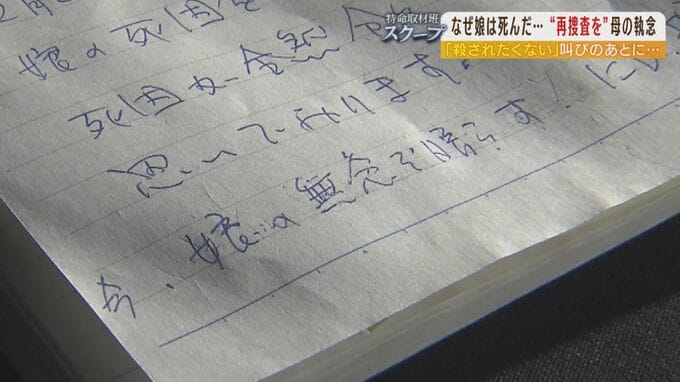 特命取材班
スクープ
なぜ娘は死んだ… “再捜査を” 母の執念
「殺されたくない」叫びのあとに…
娘の死因
死因が全然
思いであります。
今、娘の無念を晴らす!